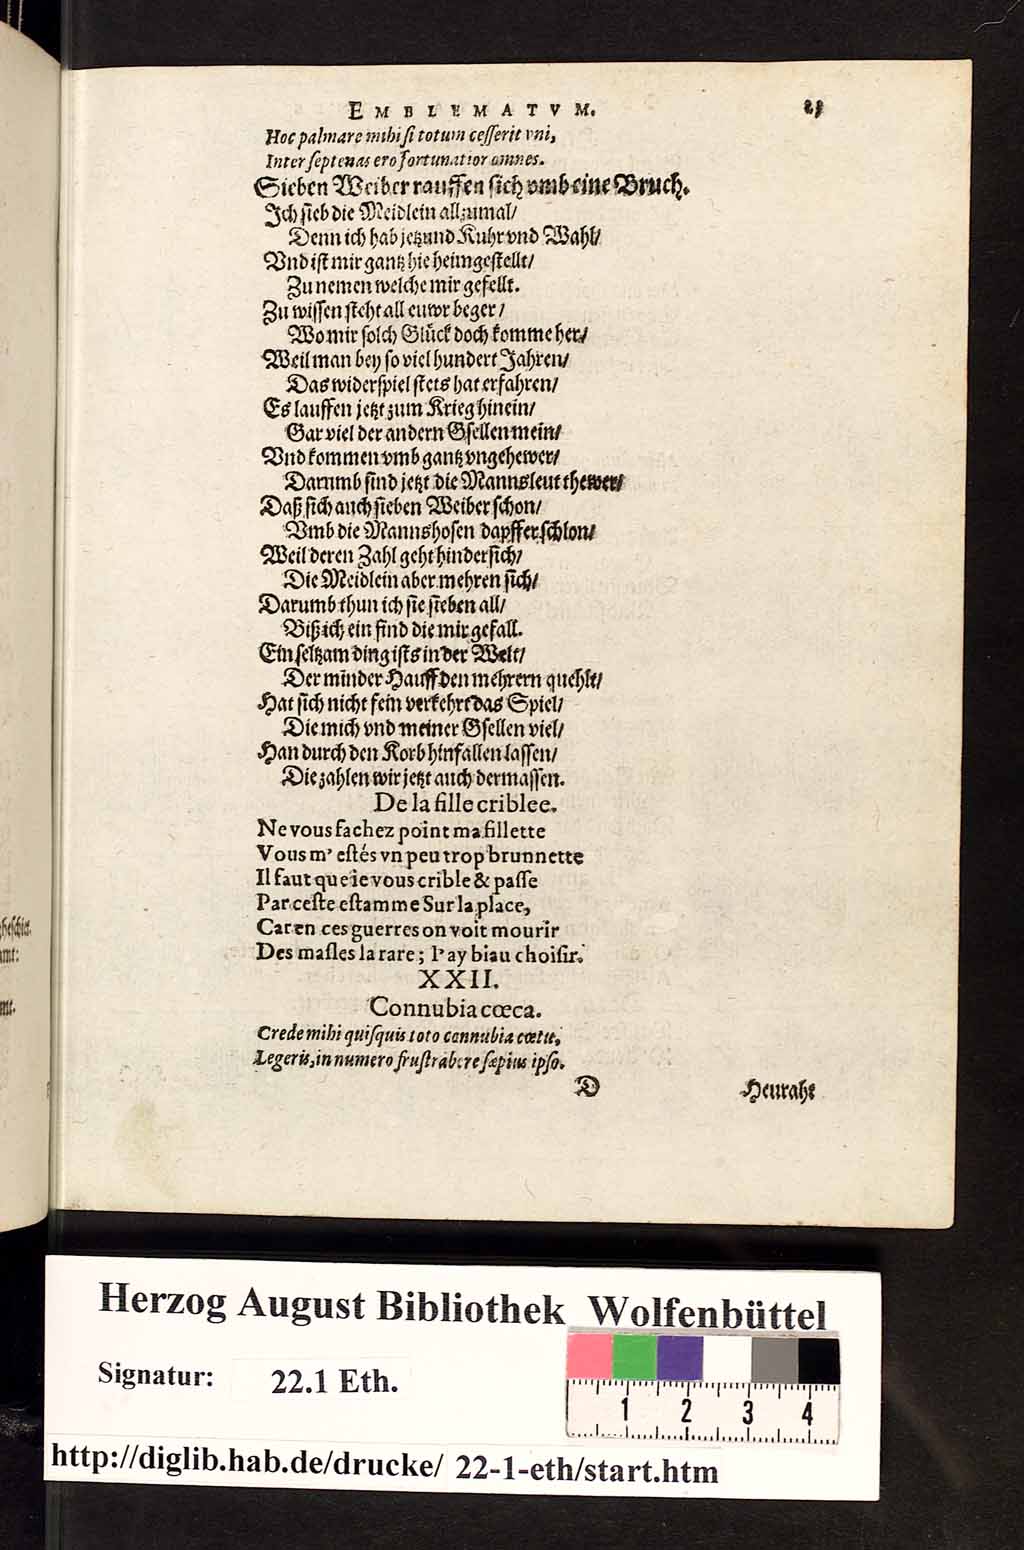 EMBLEMATVM.
Hoc palmare mihi si totum cesserit vni,
Inter septenas ero fortunatior omnes.
Sieben Weiber rauffen sich vmb eine Bruch.
Ich sieb die Meidlein allzumal/
Denn ich hab jetzund Kuhr vnd Wahl/
Vnd ist mir gantz hie heimgestellt/
Zu nemen welche mir gefellt.
Zu wissen steht all euwr beger/
Wo mir solch Glück doch komme her/
Weil man bey so viel hundert Jahren/
Das widerspiel stets hat erfahren/
Es lauffen jetzt zum Krieg hinein/
Gar viel der andern Gsellen mein/
Vnd kommen vmb gantz vngehewer/
Darumb sind jetzt die Mannsleut thewer/
Daß sich auch sieben Weiber schon/
Vmb die Mannshosen dapffer schlon/
Weil deren Zahl geht hindersich/
Die Meidlein aber mehren sich/
Darumb thun ich sie sieben all/
Biß ich ein find die mir gefall.
Ein seltzam ding ists in der Welt/
Der minder Hauff den mehrern quehlt/
Hat sich nicht fein verkehrt das Spiel/
Die mich vnd meiner Gsellen viel/
Han durch den Korb hinfallen lassen/
Die zahlen wir jetzt auch dermassen.
De la fille criblee.
Ne vous fachez point ma fillette
Vous m' estés vn peu trop brunnette
Il faut que ie vous crible & passe
Par ceste estamme Sur la place,
Car en ces guerres on voit mourir
Des masles la rare; l'ay biau choisir.
XXII.
Connubia cœca.
Crede mihi quisquis toto connubia cœtu,
Legeris, in numero frustrabere sæpius ipso.
D Heuraht
heschiet.
amt:
Herzog August Bibliothek Wolfenbüttel
Signatur: 22.1 Eth.
1 2 3 4
http://diglib.hab.de/drucke/ 22-1-eth/start.htm